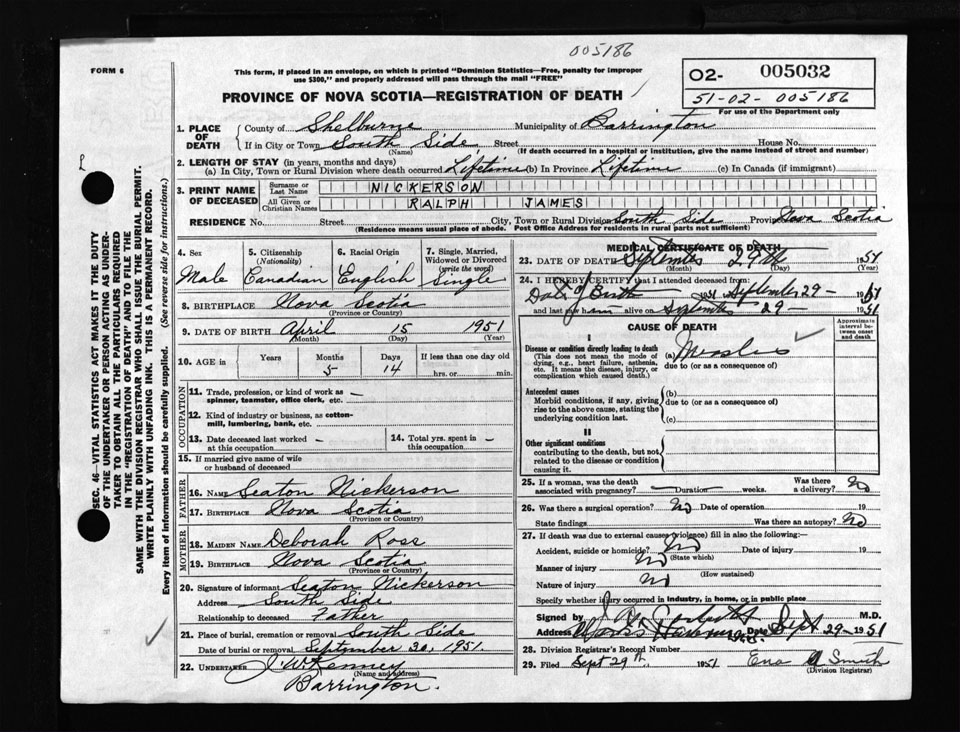 005186
FORM 6
This form, if placed in an envelope, on which is printed "Dominion Statistics—Free, penalty for improper
use $300," and properly addressed will pass through the mail "FREE"
PROVINCE OF NOVA SCOTIA—REGISTRATION OF DEATH
O2- 005032
51-02- 005186
For use of the Department only
SEC. 46—VITAL STATISTICS ACT MAKES IT THE DUTY
OF THE UNDERTAKER OR PERSON ACTING AS UNDER-
TAKER TO OBTAIN ALL THE PARTICULARS REQUIRED
IN THE "REGISTRATION OF DEATH" AND TO FILE THE
SAME WITH THE DIVISION REGISTRAR WHO SHALL ISSUE THE BURIAL PERMIT.
WRITE PLAINLY WITH UNFADING INK. THIS IS A PERMANENT RECORD.
Every item of information should be carefully supplied. (See reverse side for instructions.)
1. PLACE OF DEATH
County of Shelburne Municipality of Barrington
If in City or Town South Side, Street House No.
(Name) (If death occurred in a hospital or institution, give the name instead of street and number)
2. LENGTH OF STAY (in years, months and days)
(a) In City, Town or Rural Division where death occurred Lifetime (b) In Province Lifetime (c) In Canada (if immigrant)
3. PRINT NAME OF DECEASED
Surname or Last Name NICKERSON
All Given or Christian Names RALPH JAMES
RESIDENCE No. Street City, Town or Rural Division South Side Province Nova Scotia
(Residence means usual place of abode. Post Office Address for residents in rural parts not sufficient)
4. Sex 5. Citizenship (Nationality) 6. Racial Origin 7. Single, Married, Widowed or Divorced (write the word)
Male Canadian English Single
8. BIRTHPLACE Nova Scotia
(Province or Country)
9. DATE OF BIRTH April 15 1951
(Month) (Day) (Year)
10. AGE in Years Months Days If less than one day old
5 14 hrs. or min.
OCCUPATION
11. Trade, profession, or kind of work as —
spinner, teamster, office clerk, etc.
12. Kind of industry or business, as cotton-
mill, lumbering, bank, etc.
13. Date deceased last worked — at this occupation 14. Total yrs. spent in — this occupation
15. If married give name of wife
or husband of deceased
FATHER
16. Name Seaton Nickerson
17. Birthplace Nova Scotia
(Province or Country)
MOTHER
18. Maiden Name Deborah Ross
19. Birthplace Nova Scotia
(Province or Country)
20. Signature of informant Seaton Nickerson
Address South Side
Relationship to deceased Father
21. Place of burial, cremation or removal South Side
Date of burial or removal September 30, 1951.
22. UNDERTAKER J W Kenney
(Name and address)
Barrington.
MEDICAL CERTIFICATE OF DEATH
23. DATE OF DEATH September 29th 1951
(Month) (Day) (Year)
24. I HEREBY CERTIFY that I attended deceased from:
Date of Birth 1951 September 29 – 1951
and last saw him alive on September 29 – 1951
CAUSE OF DEATH
Approximate interval between onset and death
I
Disease or condition directly leading to death
(This does not mean the mode of
dying, e.g., heart failure, asthenia,
etc. It means the disease, injury, or
complication which caused death.)
(a) Measles
due to (or as a consequence of)
Antecedent causes
Morbid conditions, if any, giving
rise to the above cause, stating the
underlying condition last.
(b)
due to (or as a consequence of)
(c)
II
Other significant conditions
contributing to the death, but not
related to the disease or condition
causing it.
25. If a woman, was the death associated with pregnancy? — Duration — weeks. Was there a delivery? No
26. Was there a surgical operation? No Date of operation 19
State findings Was there an autopsy? No
27. If death was due to external causes (violence) fill in also the following:—
Accident, suicide or homicide? No Date of injury 19
(State which)
Manner of injury No
(How sustained)
Nature of injury No
Specify whether injury occurred in industry, in home, or in public place
Signed by M.D.
Address Date Sept 29– 1951
28. Division Registrar's Record Number
29. Filed Sept 29th, 1951 Ena A Smith
(Division Registrar)